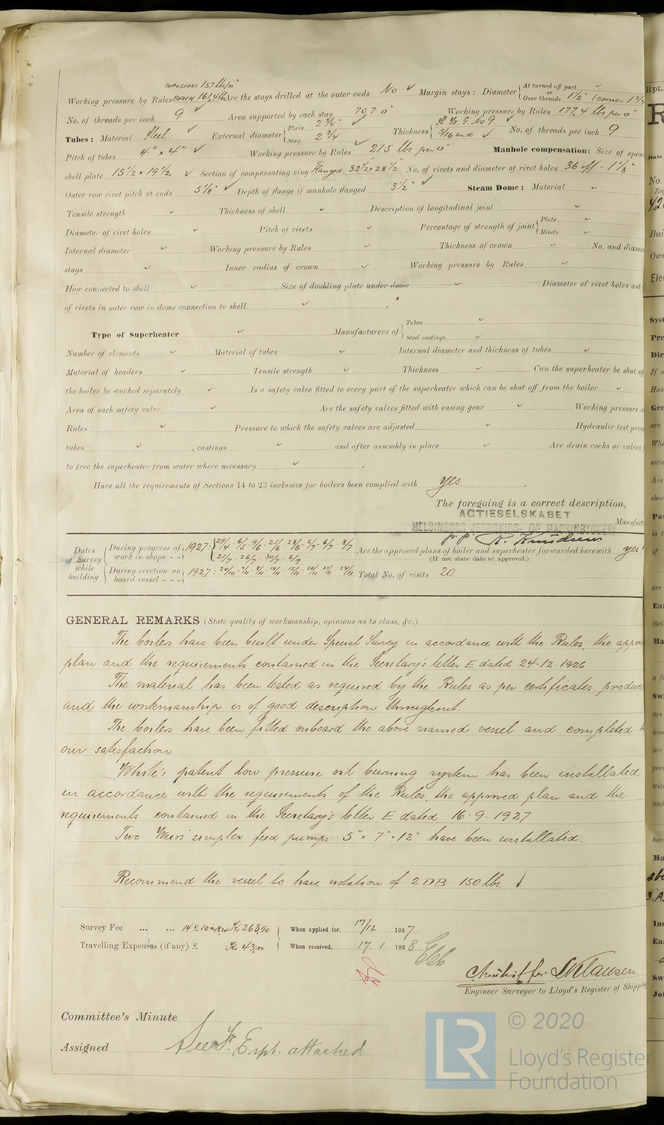 Working pressure by Rules Are the stays drilled at the outer ends No ✓ Margin stays: Diameter { At turned off part, or Over threads 1 1/2"
No. of threads per inch 9 ✓ Area supported by each stay 70,7 □" Working pressure by Rules 177,4 lbs per □"
Tubes: Material Steel ✓ External diameter { Plain 2 3/4" Stay 2 3/4 ✓ Thickness { No 9 5/16 and ✓ No. of threads per inch 9
Pitch of tubes 4" × 4" ✓ Working pressure by Rules 215 lbs per □" Manhole compensation: Size of open
shell plate 15 1/2 × 19 1/2 ✓ Section of compensating ring Flanged 32 1/2 × 28 1/2 No. of rivets and diameter of rivet holes 36 off - 1 1/8"
Outer row rivet pitch at ends 5 1/8" ✓ Depth of flange if manhole flanged 3 1/2" Steam Dome: Material ✓
Tensile strength ✓ Thickness of shell ✓ Description of longitudinal joint ✓
Diameter of rivet holes ✓ Pitch of rivets ✓ Percentage of strength of joint { Plate ✓ Rivets ✓
Internal diameter ✓ Working pressure by Rules ✓ Thickness of crown ✓ No. and diame
stays ✓ Inner radius of crown ✓ Working pressure by Rules ✓
How connected to shell ✓ Size of doubling plate under dome ✓ Diameter of rivet holes and
of rivets in outer row in dome connection to shell ✓
Type of Superheater ✓ Manufacturers of { Tubes ✓ Steel castings ✓
Number of elements ✓ Material of tubes ✓ Internal diameter and thickness of tubes ✓
Material of headers ✓ Tensile strength ✓ Thickness ✓ Can the superheater be shut of
the boiler be worked separately ✓ Is a safety valve fitted to every part of the superheater which can be shut off from the boiler ✓
Area of each safety valve ✓ Are the safety valves fitted with easing gear ✓ Working pressure a
Rules ✓ Pressure to which the safety valves are adjusted ✓ Hydraulic test pres
tubes ✓ , castings ✓ and after assembly in place ✓ Are drain cocks or valves
to free the superheater from water where necessary ✓
Have all the requirements of Sections 14 to 23 inclusive for boilers been complied with yes
The foregoing is a correct description,
ACTIESELSKABET
HELSINGØRS JERNSKIBS- OG MASKINBYGGERI Manufac
Dates of Survey while building
During progress of work in shops - - 1927:
During erection on board vessel - - - 1927:
Are the approved plans of boiler and superheater forwarded herewith yes
(If not state date of approval.)
Total No. of visits 20
GENERAL REMARKS (State quality of workmanship, opinions as to class, &c.)
The boilers have been built under Special Survey in accordance with the Rules, the appro
plan and the requirements contained in the Secretary's letter E dated 24-12-1926
The material has been tested as required by the Rules as per certificates produc
and the workmanship is of good description throughout.
The boilers have been fitted onboard the above named vessel and completed
our satisfaction
White's patent low pressure oil burning system has been installated
in accordance with the requirements of the Rules, the approved plan and the
requirements contained in the Secretary's letter E dated 16-9-1927
Two Weirs simplex feed pumps 5" × 7" × 12" have been installated.
Recommend the vessel to have notation of 2 DB - 150 lbs.
Survey Fee ... ... Kr. 263,90 When applied for, 17/12 1927
Travelling Expenses (if any) £ Kr. 43,00 When received, 17.1.1928
Engineer Surveyor to Lloyd's Register of Shipping
Committee's Minute
Assigned See F. E. rpt. attached
© 2020
LR Lloyd's Register
Foundation